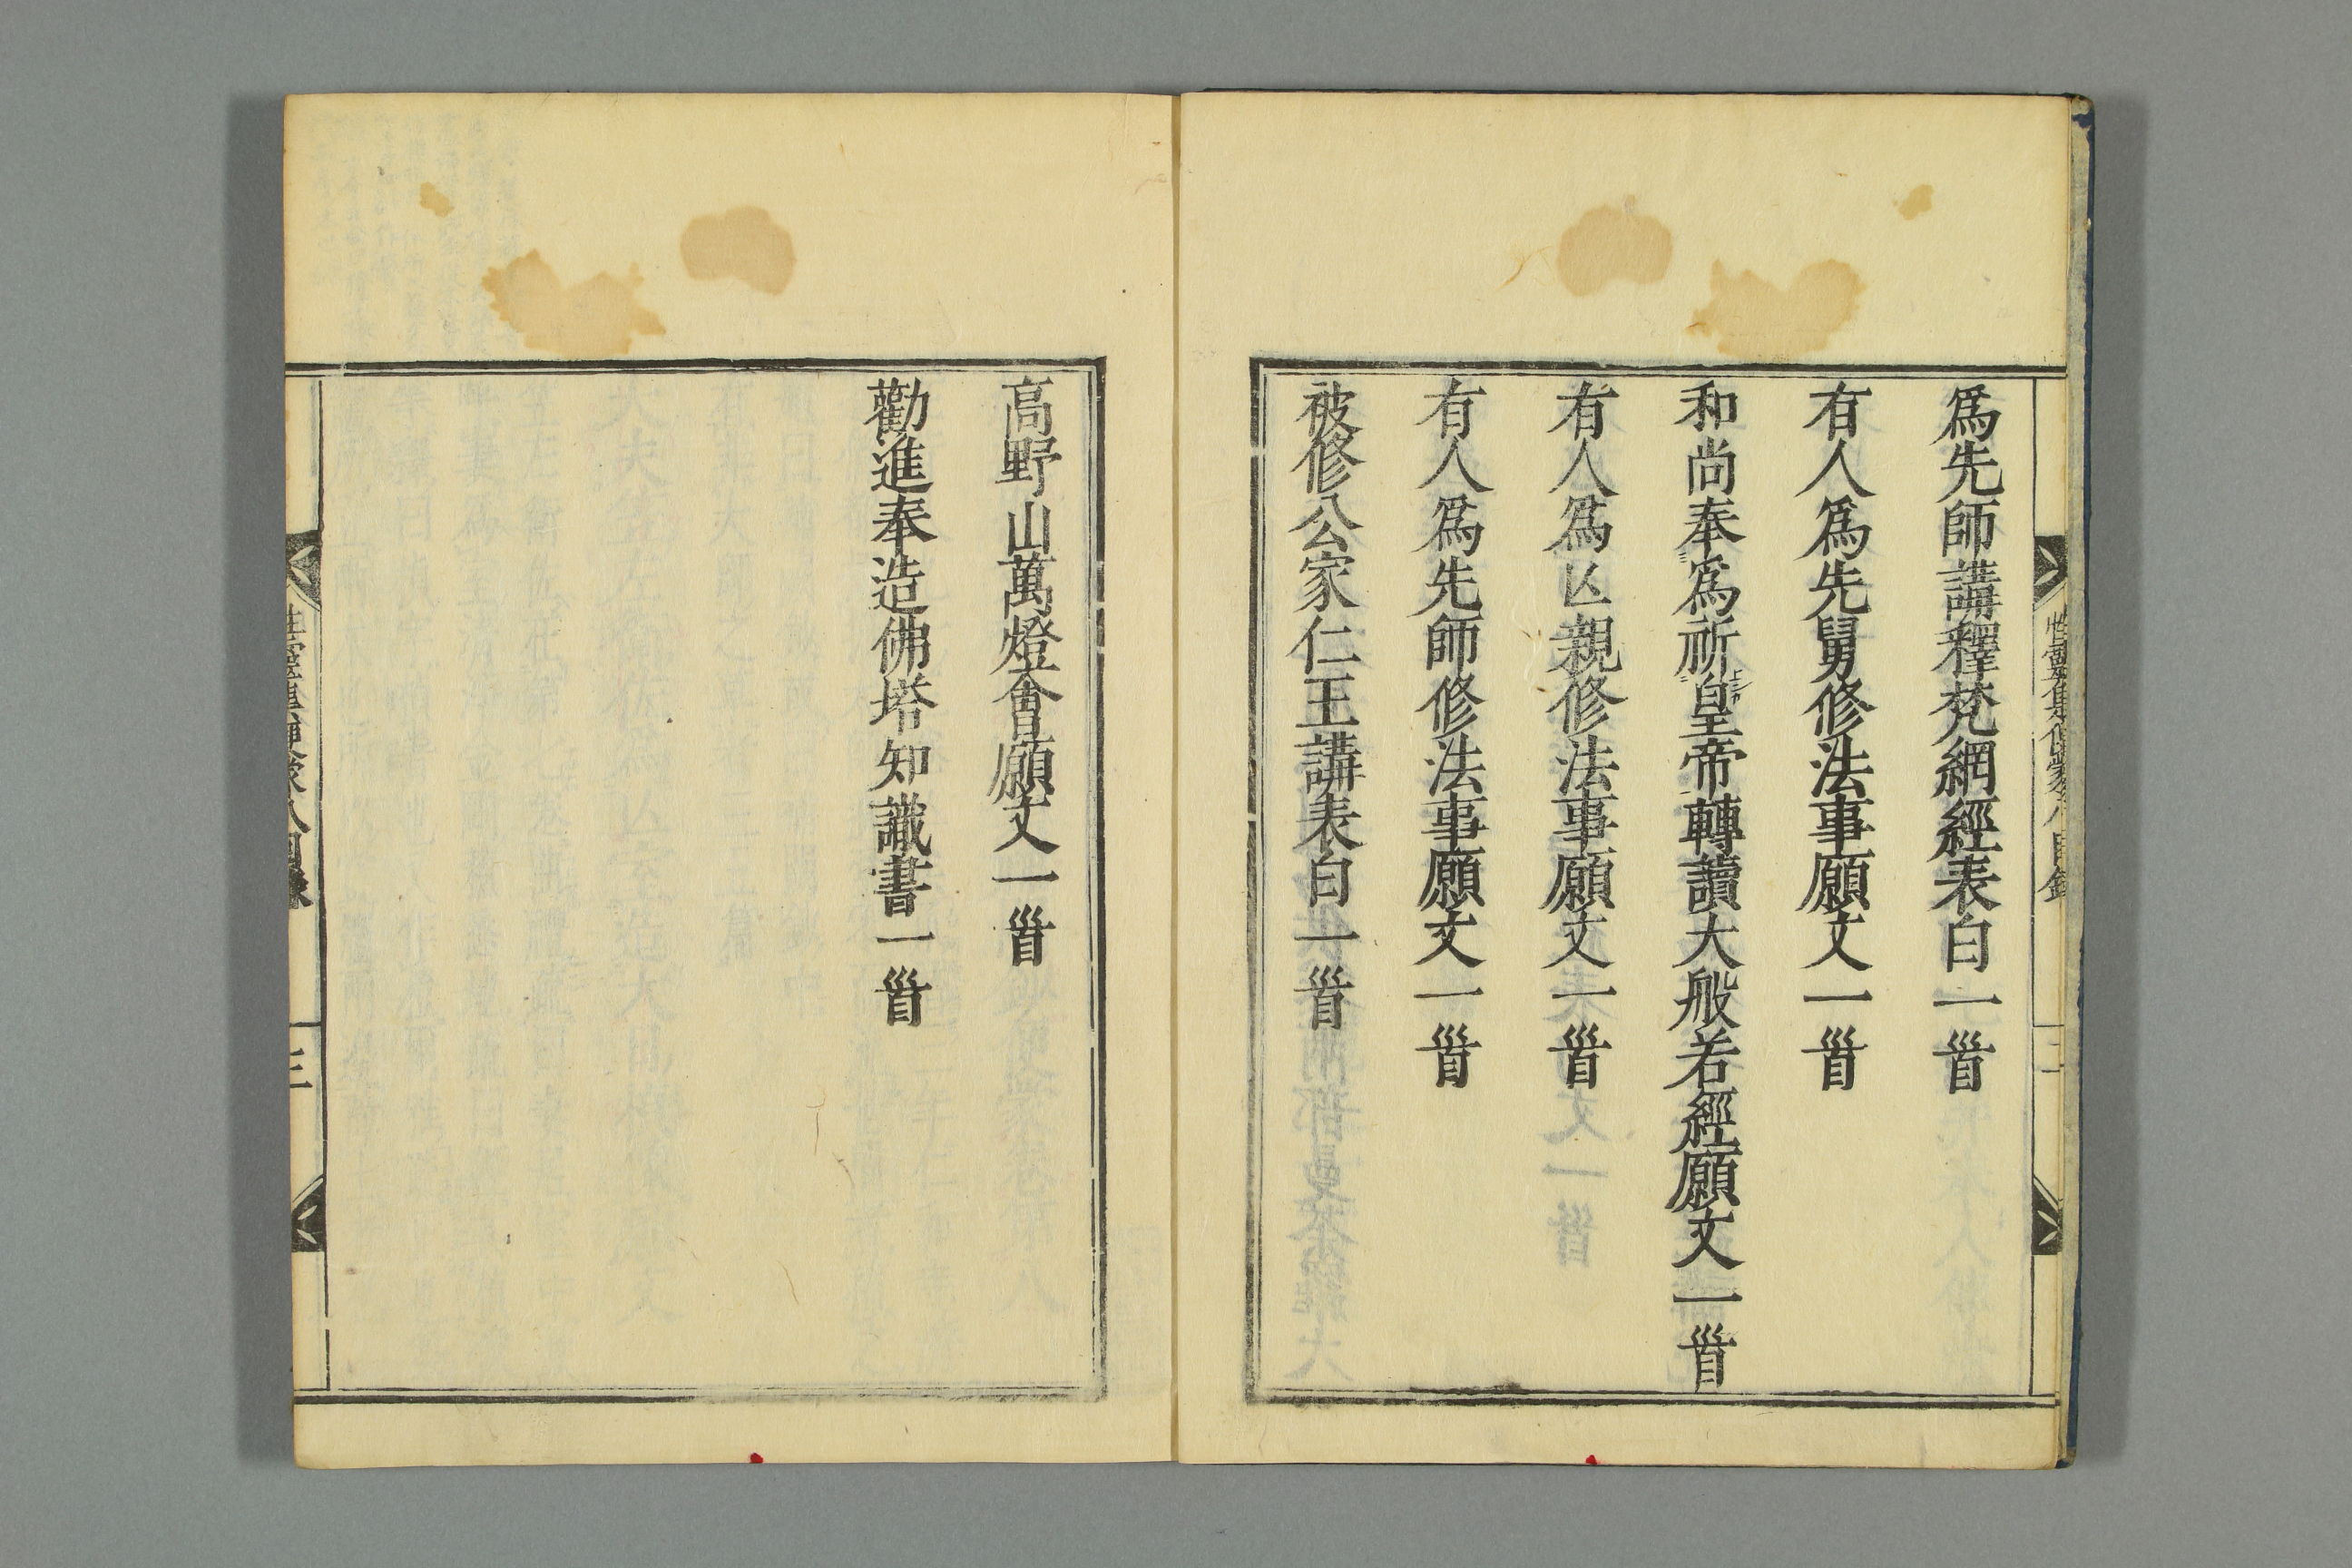 爲先師講釋梵網經表白一首
有人爲先舅修法事願文一首
和尚奉爲祈皇帝轉讀大般若經願文一首
有人爲亾親修法事願文一首
有人爲先師修法事願文一首
被修公家仁王講表白一首
高野山萬燈會願文一首
勸進奉造佛塔知識書一首
三